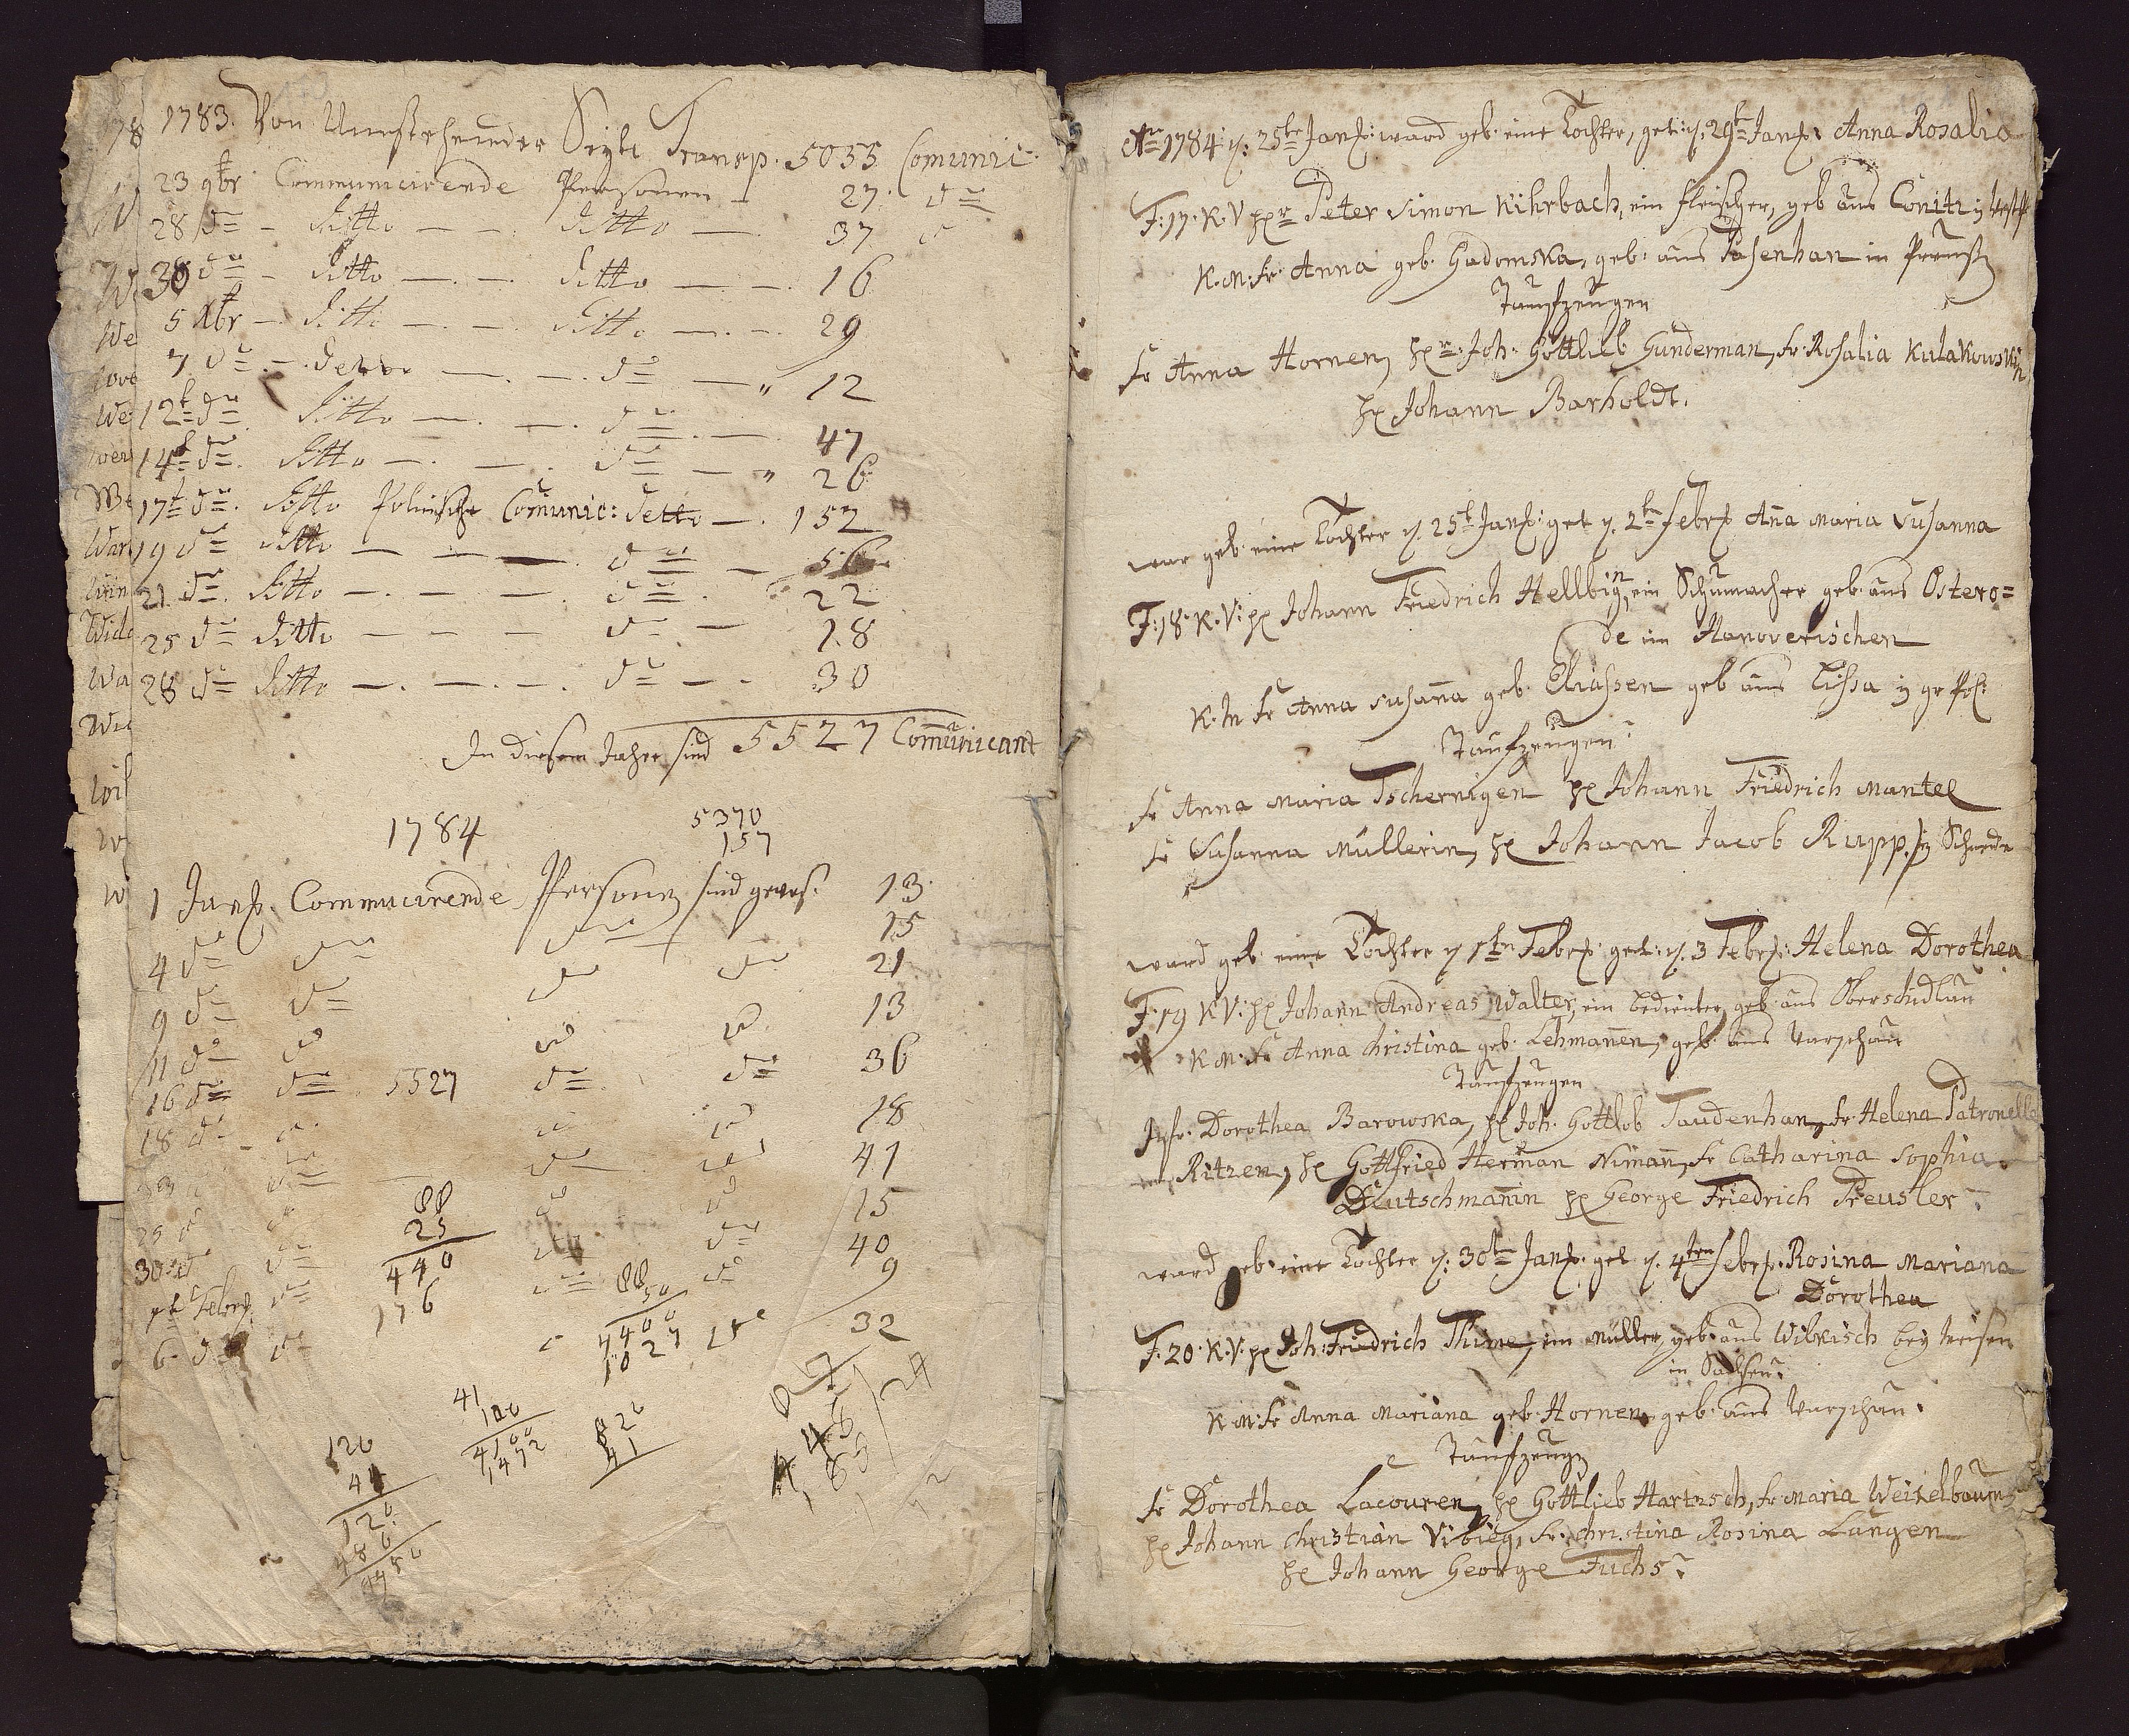 1783. Von Umstehender Seyte Transp. 5055 Comunic:
23 9br Communicirende Personen 27. do
28 do - ditto - - ditto - 37 do
30 do - ditto - - ditto - - 16
5 Xbr - ditto - - ditto - - 29
7 do - detto - - do - " 12
12t do ditto - - do - 47
14t do ditto - - do - " 26
17t do ditto Polnische Comunic: detto - 152
19 do ditto - - do - 56
21 do ditto - - - do 22
25 do ditto - - - do - 18
28 do ditto - - - do - - 30
In diesem Jahre sind 5527 Comunicant
1784
5370
157
1 Janr. Commucirende Personen sind gewes. 13
4 do do do 15
9 do do do do 21
11 do do do do 13
16 do do 5527 do do 36
18 do do do do 18
do do do 41
25 do do do do 15
30 do do do do 40
Febr. do do do 9
6 do do 32
88
25
440
176
88
50
4400
1027
41
100
4100
1472
820
41
120
44
120
480
We
We
Wo
We
Wid
Wa
Wil
Ao 1784 d. 25te Janr: ward geb. eine Tochter, get: d. 29t Janr. Anna Rosalia
F: 17. K. V Hr Peter Simon Kihrbach, ein Fleischer, geb aus Conitz in Westp
K. M: Fr. Anna geb. Gadomska, geb: aus Pasenhan in Preusß
Taufzeugen
Fr Anna Hornen, Hr: Joh. Gottlieb Gunderman, Fr. Rosalia Kulakowskin
Hr Johann Barholdt.
war geb. eine Tochter d. 25t Janr: get d. 2t Febr. Ana Maria Susanna
F: 18. K. V: Hr Johann Friedrich Hellbig, ein Schumacher geb. aus Ostero=
de im Hanoverischen
K. M Fr Anna Susana geb. Eliassen geb aus Lissa in gr Pol:
Taufzeugen:
Fr Anna Maria Tschernigen Hr Johann Friedrich Mantel
Fr Susanna Müllerin, Hr Johann Jacob Rupp.
ward geb. eine Tochter d 1ten Febr. get: d. 3 Febr: Helena Dorothea
F: 19 K V: Hr Johann Andreas Walter, ein bedienter, geb. aus Oberschidlau
K M: Fr Anna Christina geb. Lehmanen, geb. aus Warschau
Taufzeugen
Jgfr. Dorothea Barowska, Hr Joh. Gottlob Taudenhan, Fr. Helena Patronelle
Ritzen, Hr Gottfried Herman Nimann, Fr Catharina Sophia
Deutschmanin Hr George Friedrich Preusler.
ward geb. eine Tochter d. 30te Janr. get d. 4ten Febr. Rosina Mariana
Dorothea
F: 20. K. V: Hr Joh: Friedrich Thime, ein Müller, geb. aus Wilkisch bey Meisen
in Sachsen:
K M: Fr Anna Mariana geb. Hornen, geb. aus Warschau.
Taufzeugen
Fr Dorothea Lacouren, Hr Gottlieb Hartzsch, Fr Maria Weiselbaum
Hr Johann Christian Vibieg, Fr. Christina Rosina Langen
Hr Johann George Fuchs.